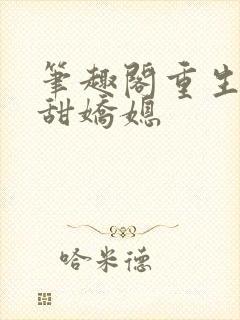 筆趣閣重生
甜嬌媳
哈米德